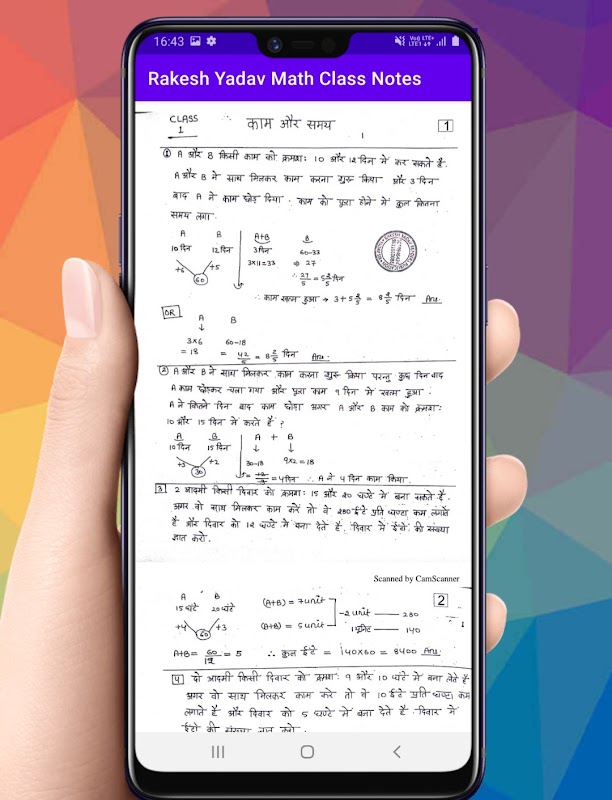 16:43
Vo)) LTE+
LTE1
Rakesh Yadav Math Class Notes
CLASS
1
काम और समय
1
① A और B किसी काम को क्रमशः 10 और 12 दिन में कर सकते है.
A और B ने साथ मिलकर काम करना शुरू किया और 3 दिन
बाद A ने काम छोड़ दिया. काम को पुरा होने में कुल कितना
समय लगा.
A B A+B B
10 दिन 12 दिन 3 दिन 60-33
+6 +5 3x11=33 ⇒ 27
60 ∴ 27/5 = 5 2/5 दिन
∴ काम खत्म हुआ → 3+5 2/5 = 8 2/5 दिन Ans.
OR
A B
↓
3x6 60-18
= 18 = 42/5 = 8 2/5 दिन Ans.
② A और B ने साथ मिलकर काम करना शुरू किया परन्तु कुछ दिन बाद
A काम छोड़कर चला गया और पुरा काम 9 दिन में खत्म हुआ.
A ने कितने दिन बाद काम छोड़ा अगर A और B काम को क्रमशः
10 और 15 दिन में करते है ?
A B A + B
10 दिन 15 दिन ↓ ↓
+3 +2 30-18 9x2=18
30 = 4 दिन ∴ A ने 4 दिन काम किया.
3 2 आदमी किसी दिवार को क्रमशः 15 और 20 घण्टे में बना सकते है.
अगर वो साथ मिलकर काम करें तो वे 280 ईंटे प्रति घण्टा कम लगाते
है और दिवार को 12 घण्टे में बना देते है. दिवार में ईंटों की संख्या
ज्ञात करो.
Scanned by CamScanner
2
A B (A+B) = 7 unit
15 घंटे 20 घंटे -2 unit — 280
+4 +3 (A+B) = 5 unit 1 यूनिट — 140
60
A+B = 60/12 = 5 ∴ कुल ईंटे = 140x60 = 8400 Ans.
4 दो आदमी किसी दिवार को क्रमशः 9 और 10 घंटे में बना लेते है
अगर वो साथ मिलकर काम करे तो वे 10 ईंटे प्रति घण्टा कम
लगाते है और दिवार को 5 घण्टे में बना देते है. दिवार में
ईंटों की संख्या ज्ञात करो.